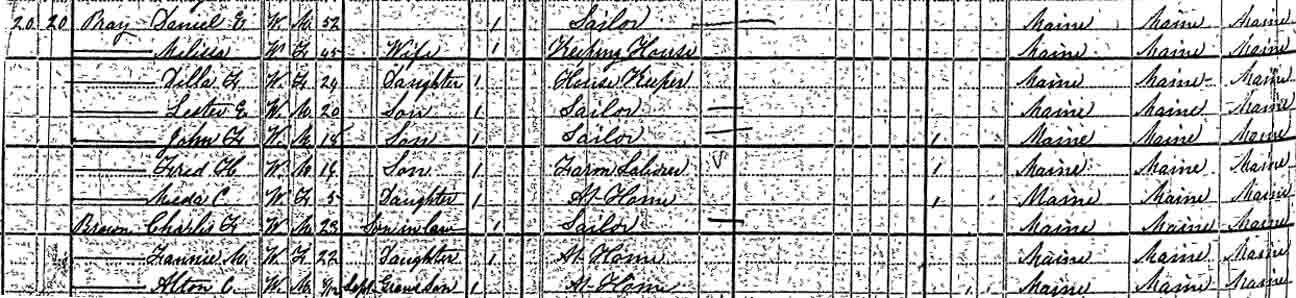 20 20 Bray Daniel W. M. 52 1 Sailor Maine Maine Maine
Melissa W. F. 45 Wife 1 Keeping House Maine Maine Maine
Della F W. F 24 Daughter 1 House Keeper Maine Maine Maine
Lester E W. M. 20 Son 1 Sailor Maine Maine Maine
John F W. M. 18 Son 1 Sailor 1 Maine Maine Maine
Fred H W. M. Son 1 Farm Laborer 1 Maine Maine Maine
Meda C W. F 5 Daughter 1 At Home 1 Maine Maine Maine
Brown Charles F W. M. 23 Son in law 1 Sailor Maine Maine Maine
Fannie M W. F. 22 Daughter 1 At Home Maine Maine Maine
Alton C W. M. Sept Grand Son 1 At Home Maine Maine Maine